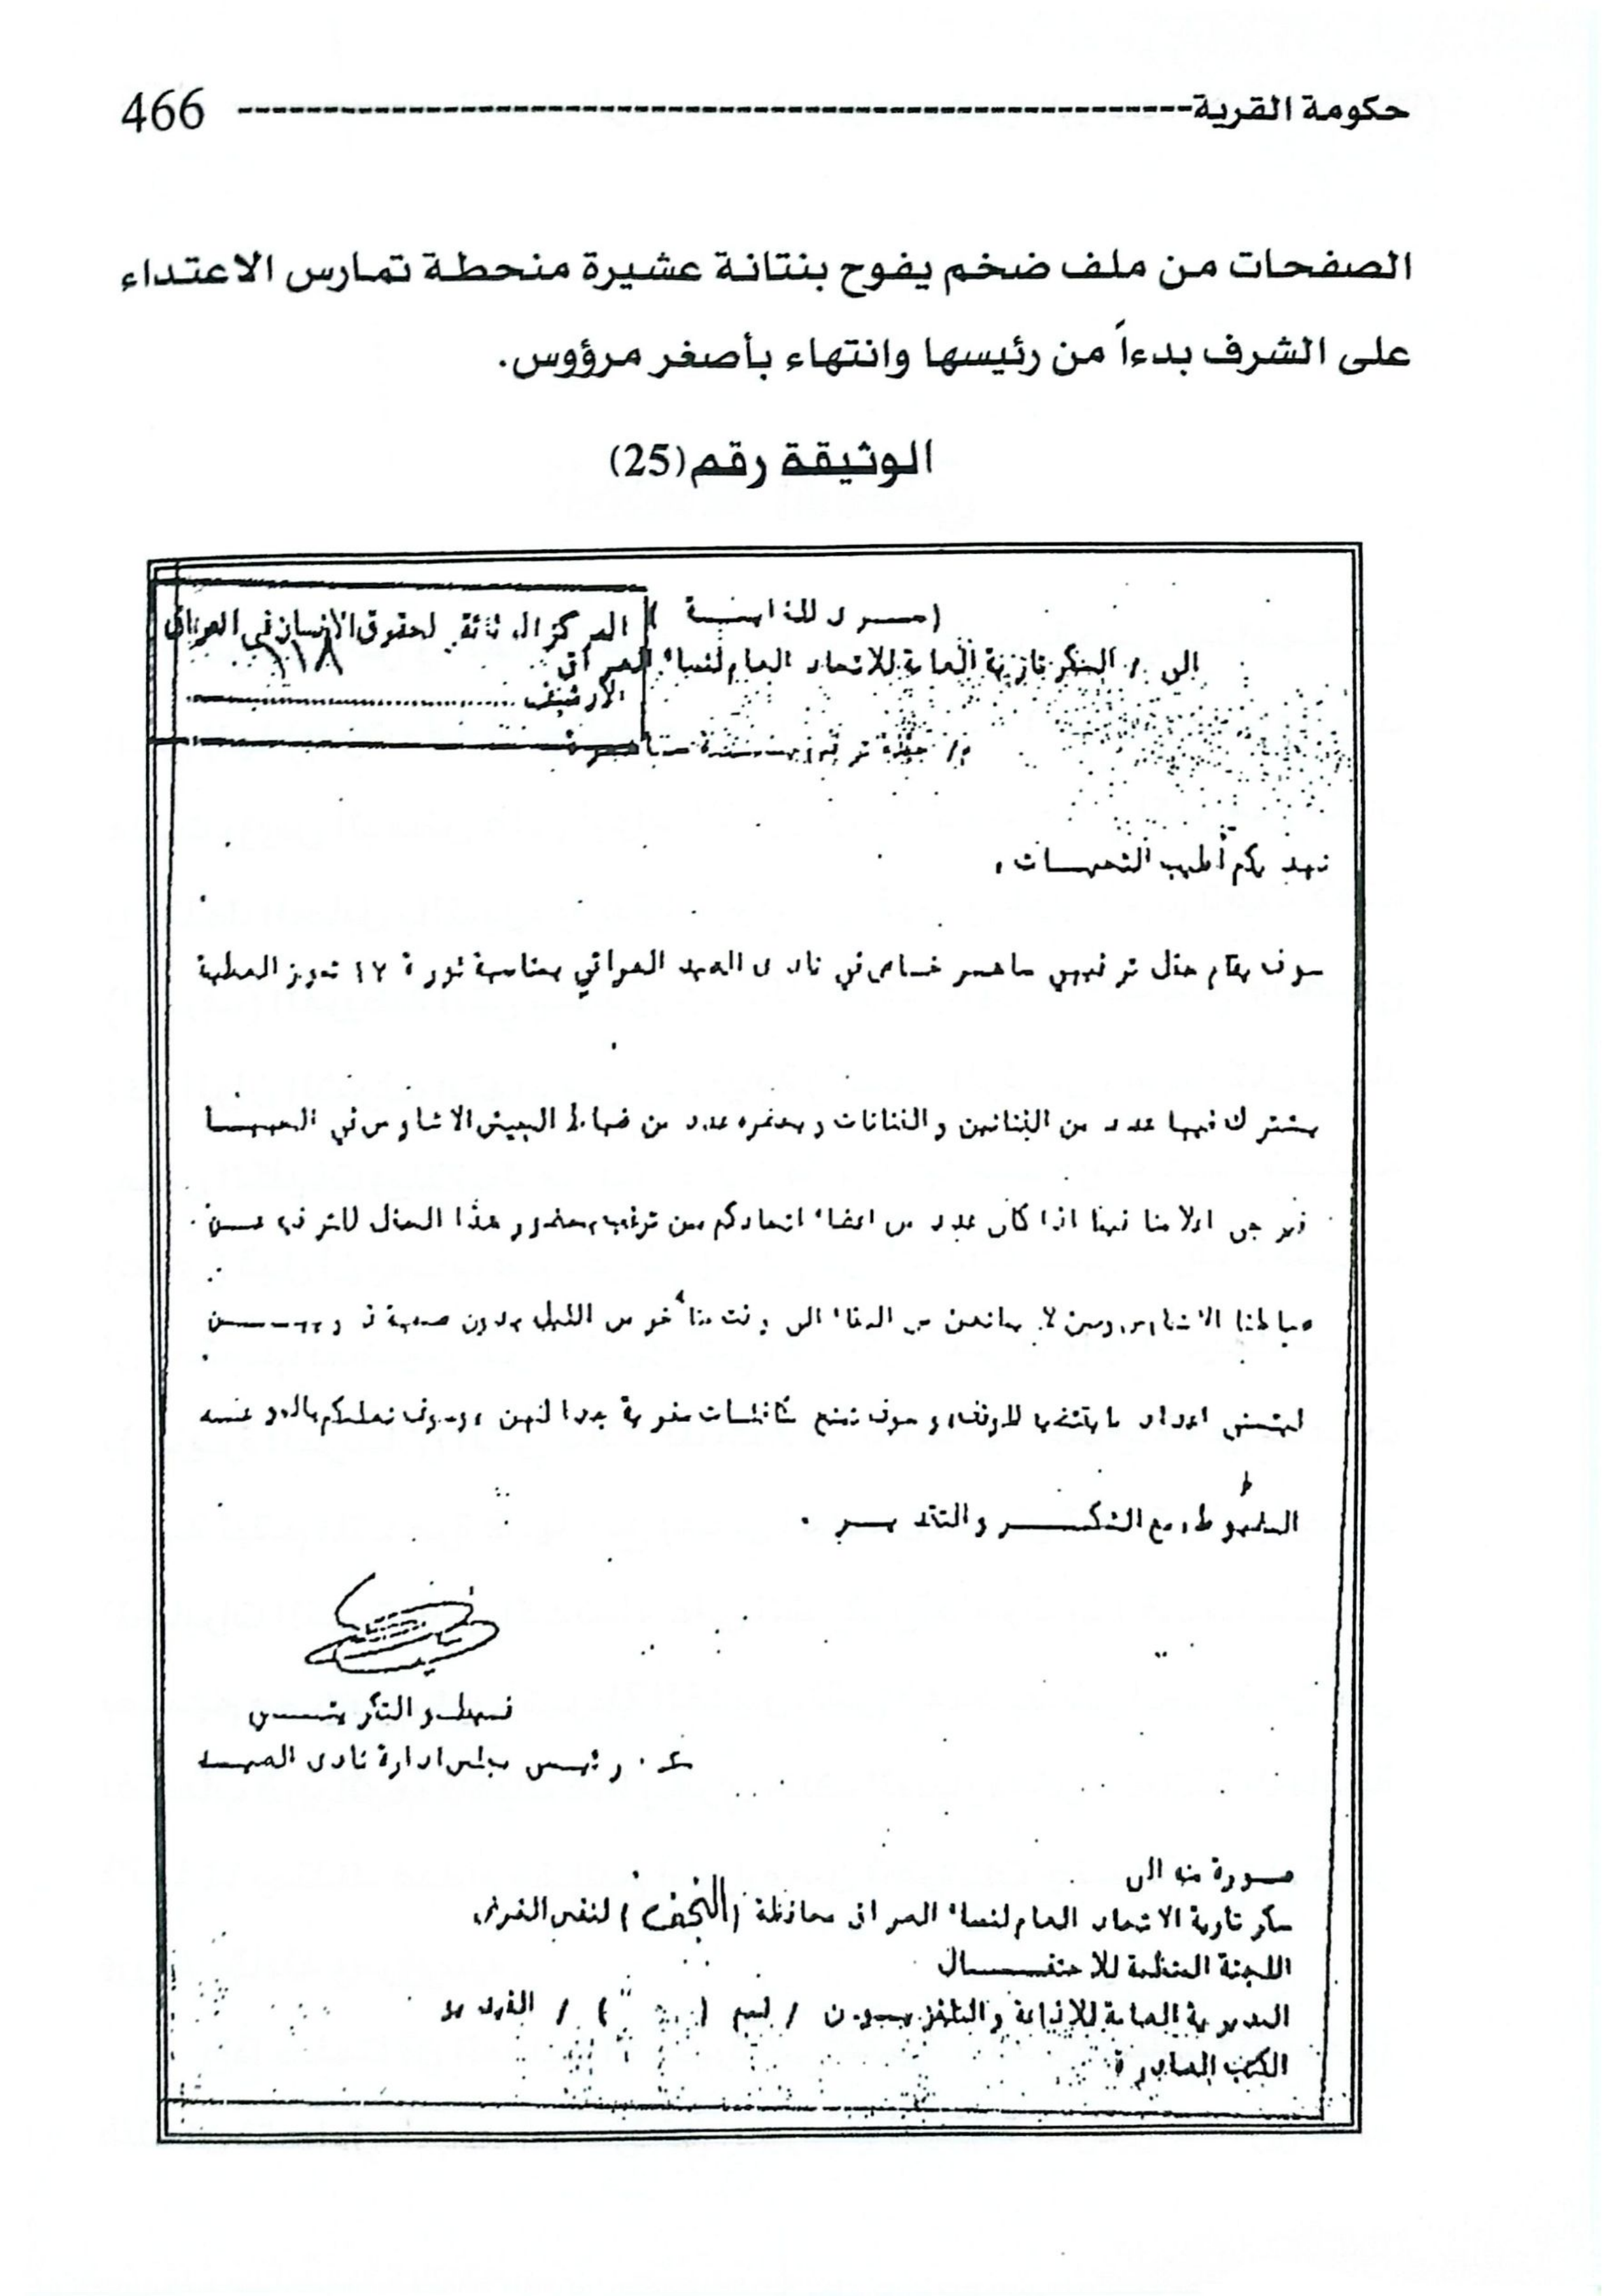 حكومة القرية 466
الصفحات من ملف ضخم يفوح بنتانة عشيرة منحطة تمارس الاعتداء
على الشرف بدءاً من رئيسها وانتهاء بأصغر مرؤوس.
الوثيقة رقم (25)
(سري للغاية)
المركز الوثائقي لحقوق الانسان في العراق
١١٨
الى / السكرتارية العامة للاتحاد العام لنساء العراق
الأرشيف
م/ حفلة ترفيهية ساهرة
نهديكم أطيب التحيات ،
سوف يقام حفل ترفيهي ساهر خاص في نادي الصيد العراقي بمناسبة ثورة ١٧ تموز العظيمة
يشترك فيها عدد من الفنانين والفنانات ويحضره عدد من ضباط الجيش الاشاوس في
نرجو اعلامنا فيما اذا كان عدد من اعضاء اتحادكم ممن ترغب بحضور هذا الحفل للترفيه عن
ضباطنا الاشاوس وممن لا يمانعن من البقاء الى وقت متأخر من الليل بدون صحبة ذويهن
ليتسنى اعداد ما يقتضيه الموقف وسوف تمنح مكافئات مغرية بدا لهن ، وسوف نعلمكم بالموعد
المضبوط مع الشكر والتقدير .
التكريتي
ع . رئيس مجلس ادارة نادي الصيد
صورة منه الى
سكرتارية الاتحاد العام لنساء العراق محافظة (النجف) لنفس الغرض
اللجنة المنظمة للاحتفال
المديرية العامة للاذاعة والتلفزيون / قسم ( ) / الفيديو
الكتب الصادرة